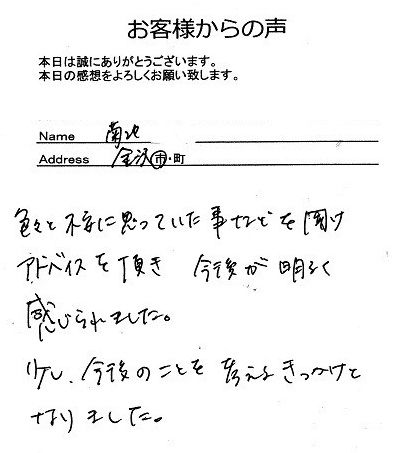 お客様からの声
本日は誠にありがとうございます。
本日の感想をよろしくお願い致します。
Name 菊池
Address 金沢市・町
色々と不安に思っていた事などを聞け
アドバイスを頂き 今後が明るく
感じられました。
少し、今後のことを考えるきっかけと
なりました。